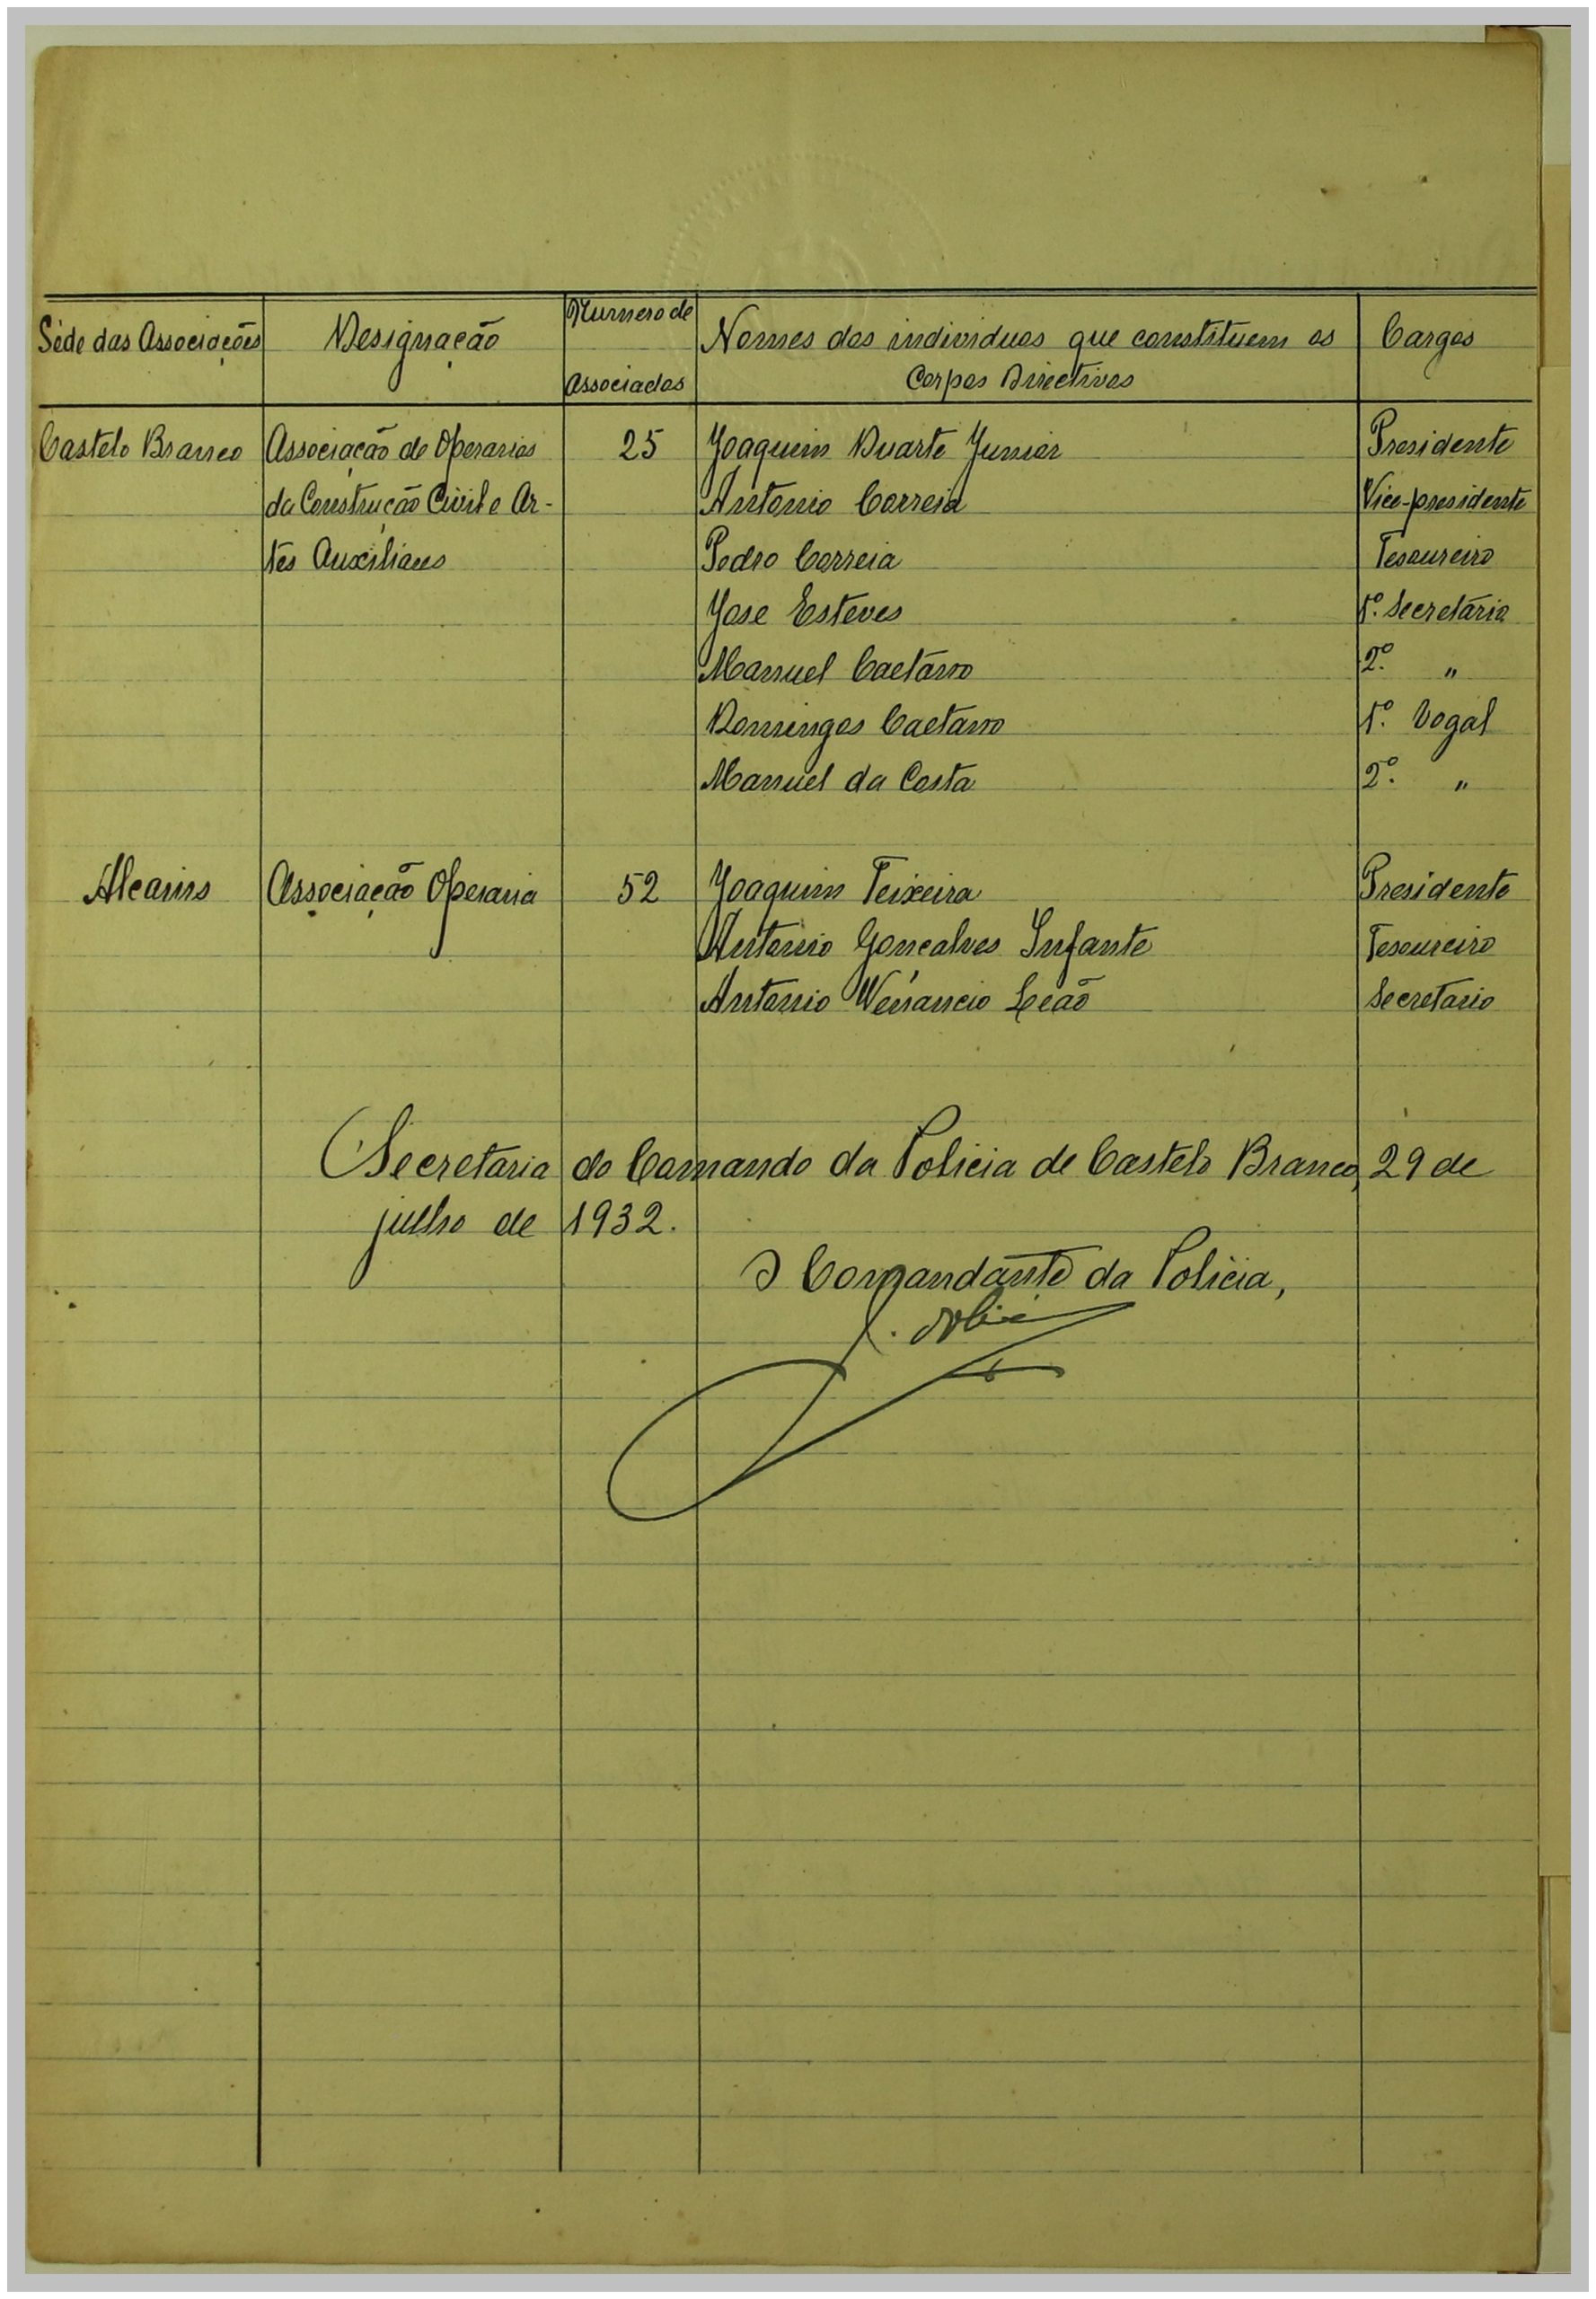 Séde das Associações Designação Numero de Associados Nomes dos individuos que constituem os Corpos Directivos Cargos
Castelo Branco Associação de Operarios 25 Joaquim Duarte Junior Presidente
da Construção Civil e Ar- Antonio Correia Vice-presidente
tes Auxiliares Pedro Correia Tesoureiro
José Esteves 1º. Secretário
Manuel Caetano 2º. "
Domingos Caetano 1º. Vogal
Manuel da Costa 2º. "
Alcains Associação Operaria 52 Joaquim Teixeira Presidente
Antonio Gonçalves Infante Tesoureiro
Antonio Venancio Leão Secretario
Secretaria do Comando da Policia de Castelo Branco, 29 de
julho de 1932.
O Comandante da Policia,